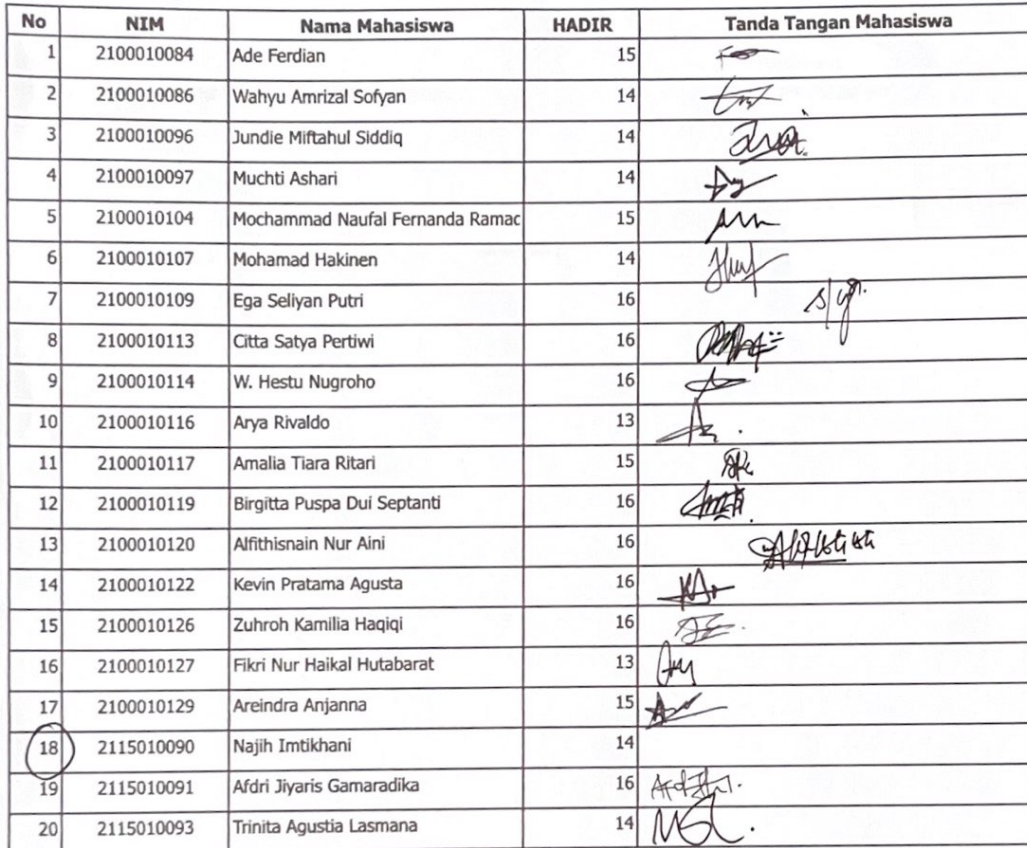 No NIM Nama Mahasiswa HADIR Tanda Tangan Mahasiswa
1 2100010084 Ade Ferdian 15
2 2100010086 Wahyu Amrizal Sofyan 14
3 2100010096 Jundie Miftahul Siddiq 14
4 2100010097 Muchti Ashari 14
5 2100010104 Mochammad Naufal Fernanda Ramac 15
6 2100010107 Mohamad Hakinen 14
7 2100010109 Ega Seliyan Putri 16
8 2100010113 Citta Satya Pertiwi 16
9 2100010114 W. Hestu Nugroho 16
10 2100010116 Arya Rivaldo 13
11 2100010117 Amalia Tiara Ritari 15
12 2100010119 Birgitta Puspa Dui Septanti 16
13 2100010120 Alfithisnain Nur Aini 16
14 2100010122 Kevin Pratama Agusta 16
15 2100010126 Zuhroh Kamilia Haqiqi 16
16 2100010127 Fikri Nur Haikal Hutabarat 13
17 2100010129 Areindra Anjanna 15
18 2115010090 Najih Imtikhani 14
19 2115010091 Afdri Jiyaris Gamaradika 16
20 2115010093 Trinita Agustia Lasmana 14